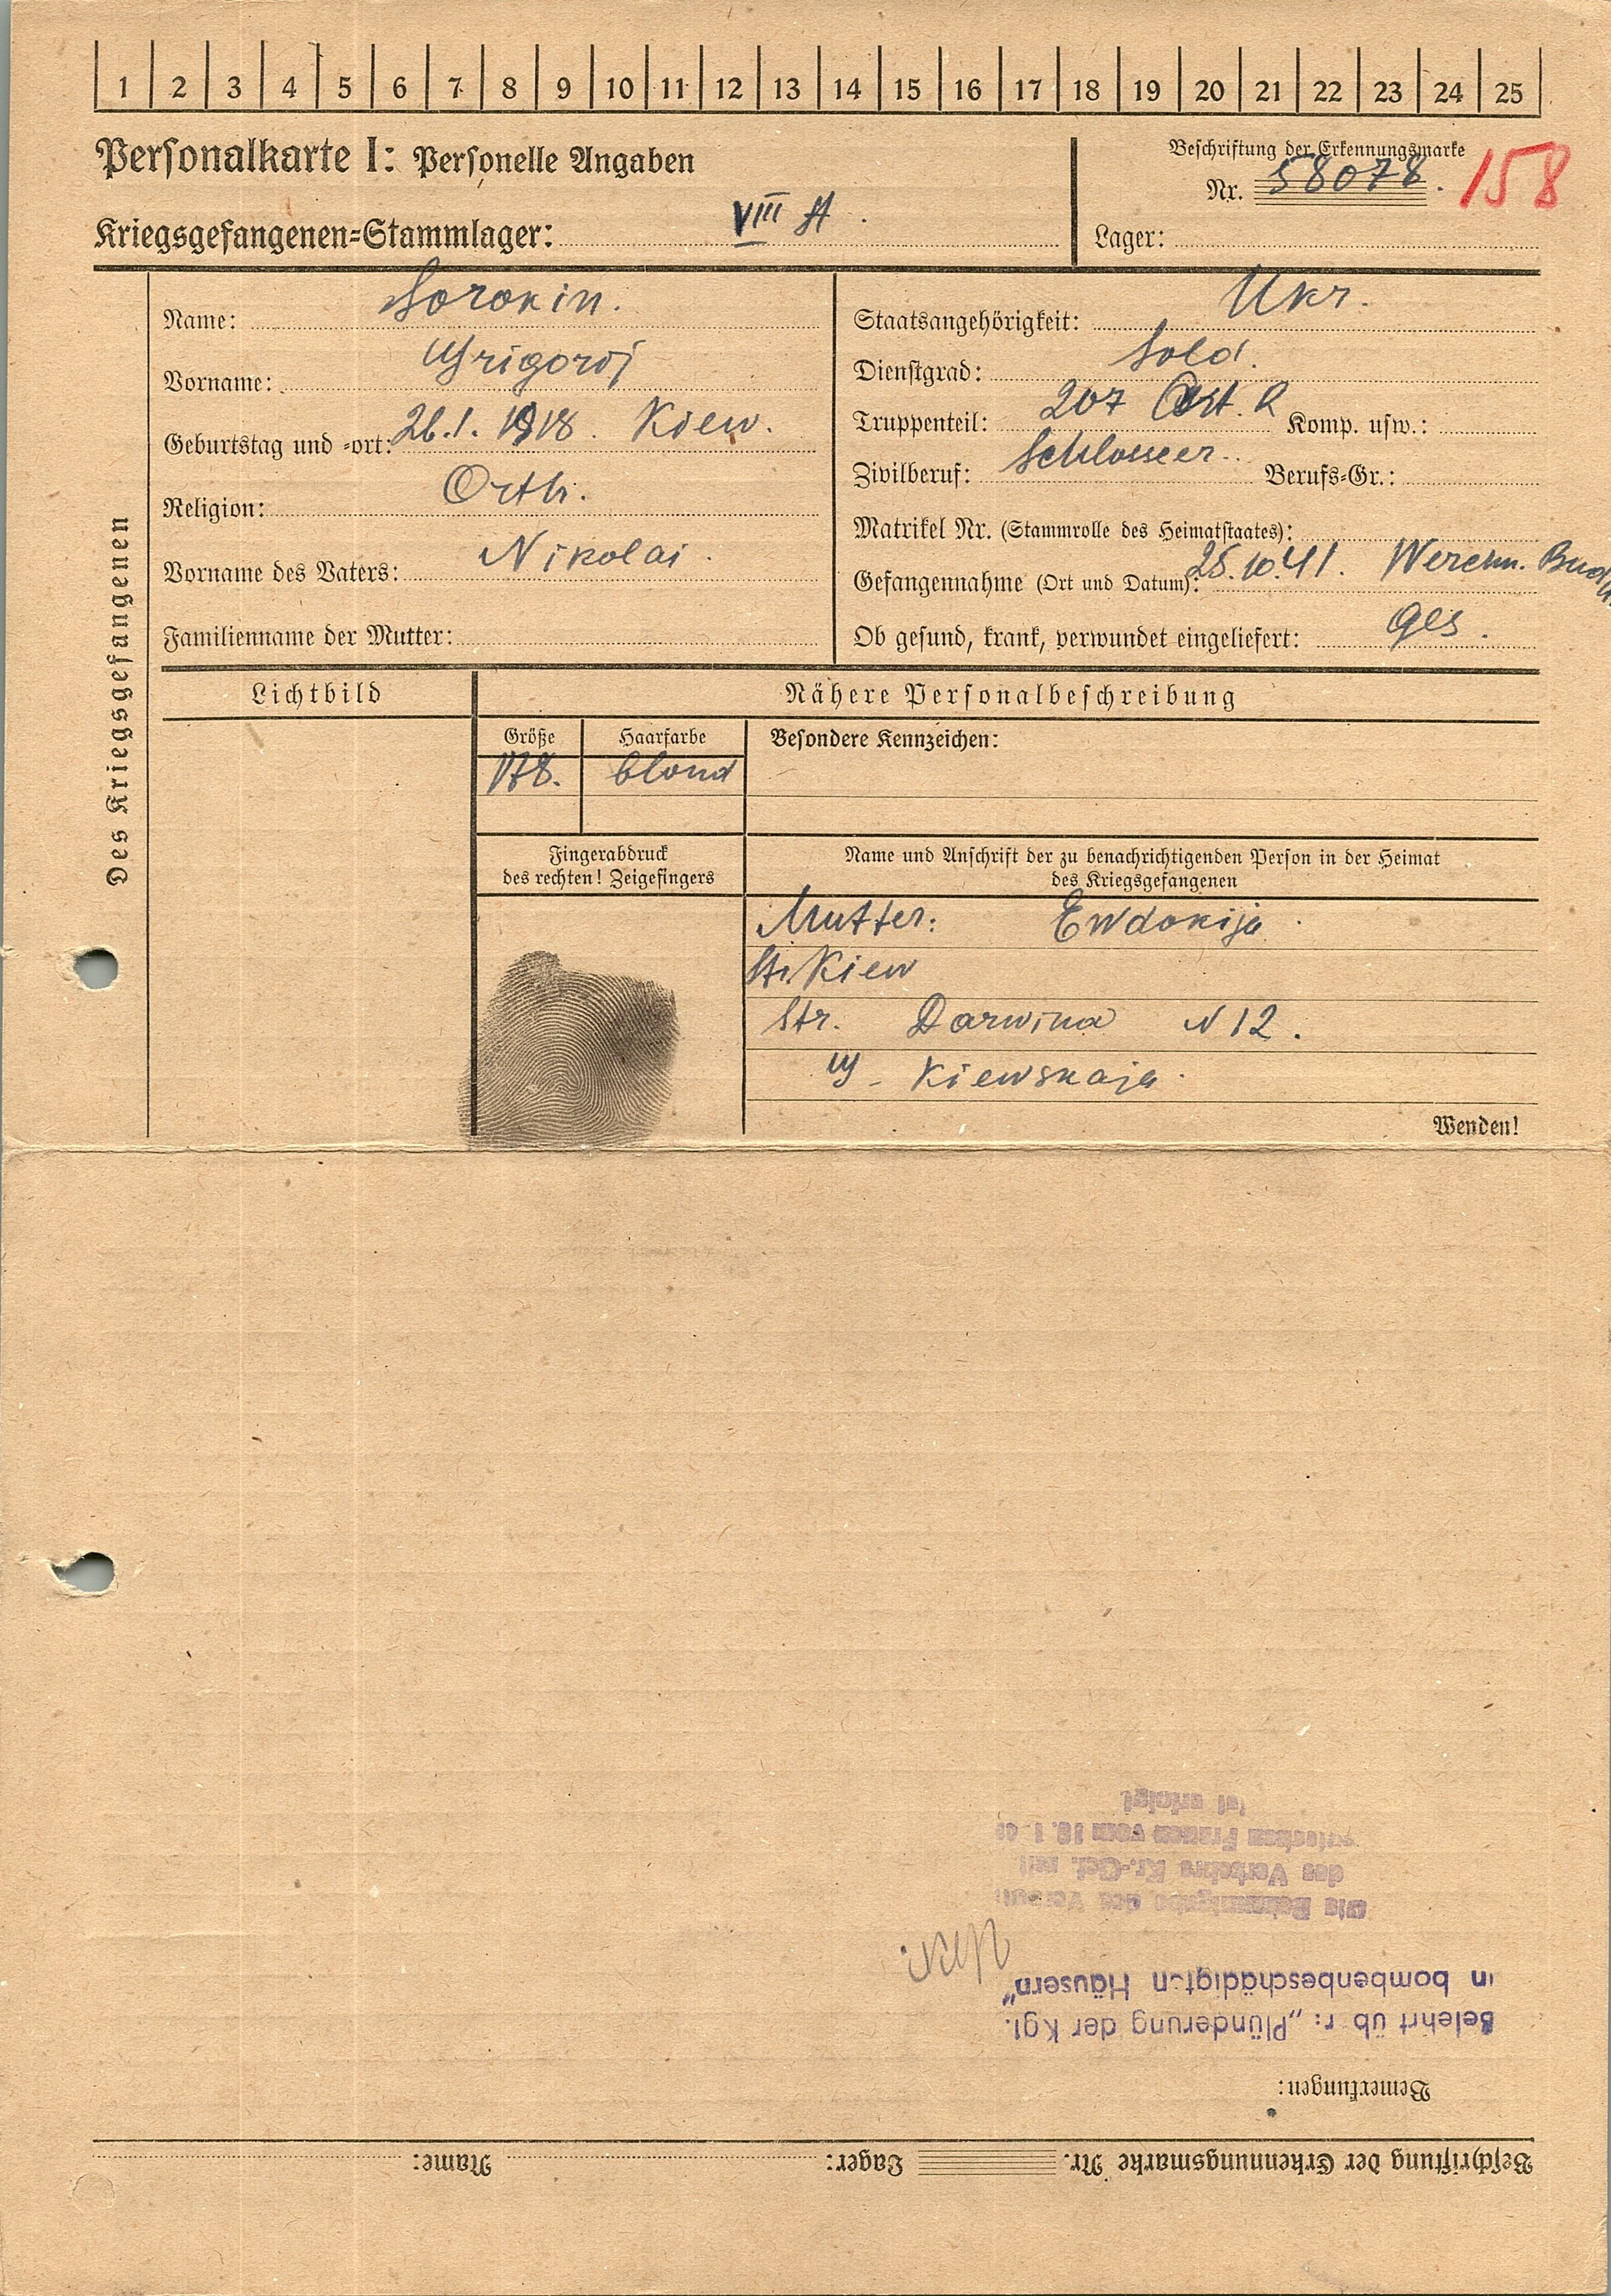 1 2 3 4 5 6 7 8 9 10 11 12 13 14 15 16 17 18 19 20 21 22 23 24 25
Personalkarte I: Personelle Angaben
Kriegsgefangenen-Stammlager: VIII A.
Beschriftung der Erkennungsmarke
Nr. 58078. 158
Lager:
Des Kriegsgefangenen
Name: Sorokin.
Vorname: Grigorij
Geburtstag und -ort: 26.1.1918. Kiew.
Religion: Orth.
Vorname des Vaters: Nikolai.
Familienname der Mutter:
Staatsangehörigkeit: Ukr.
Dienstgrad: Sold.
Truppenteil: 207 Art. R Komp. usw.:
Zivilberuf: Schlosser. Berufs-Gr.:
Matrikel Nr. (Stammrolle des Heimatstaates):
Gefangennahme (Ort und Datum): 25.10.41.
Ob gesund, krank, verwundet eingeliefert: Ges.
Lichtbild
Nähere Personalbeschreibung
Größe Haarfarbe Besondere Kennzeichen:
178. blond
Fingerabdruck
des rechten! Zeigefingers
Name und Anschrift der zu benachrichtigenden Person in der Heimat
des Kriegsgefangenen
Mutter: Ewdokija.
St. Kiew
Str. Darwina N 12.
Kiewskaja.
Wenden!
Beschriftung der Erkennungsmarke Nr. Lager: Name:
Bemerkungen:
Belehrt üb r: „Plünderung der Kgf.
in bombenbeschädigten Häusern"
des Verkehrs Kr.-Gef. mit
Frauen vom
ist erfolgt